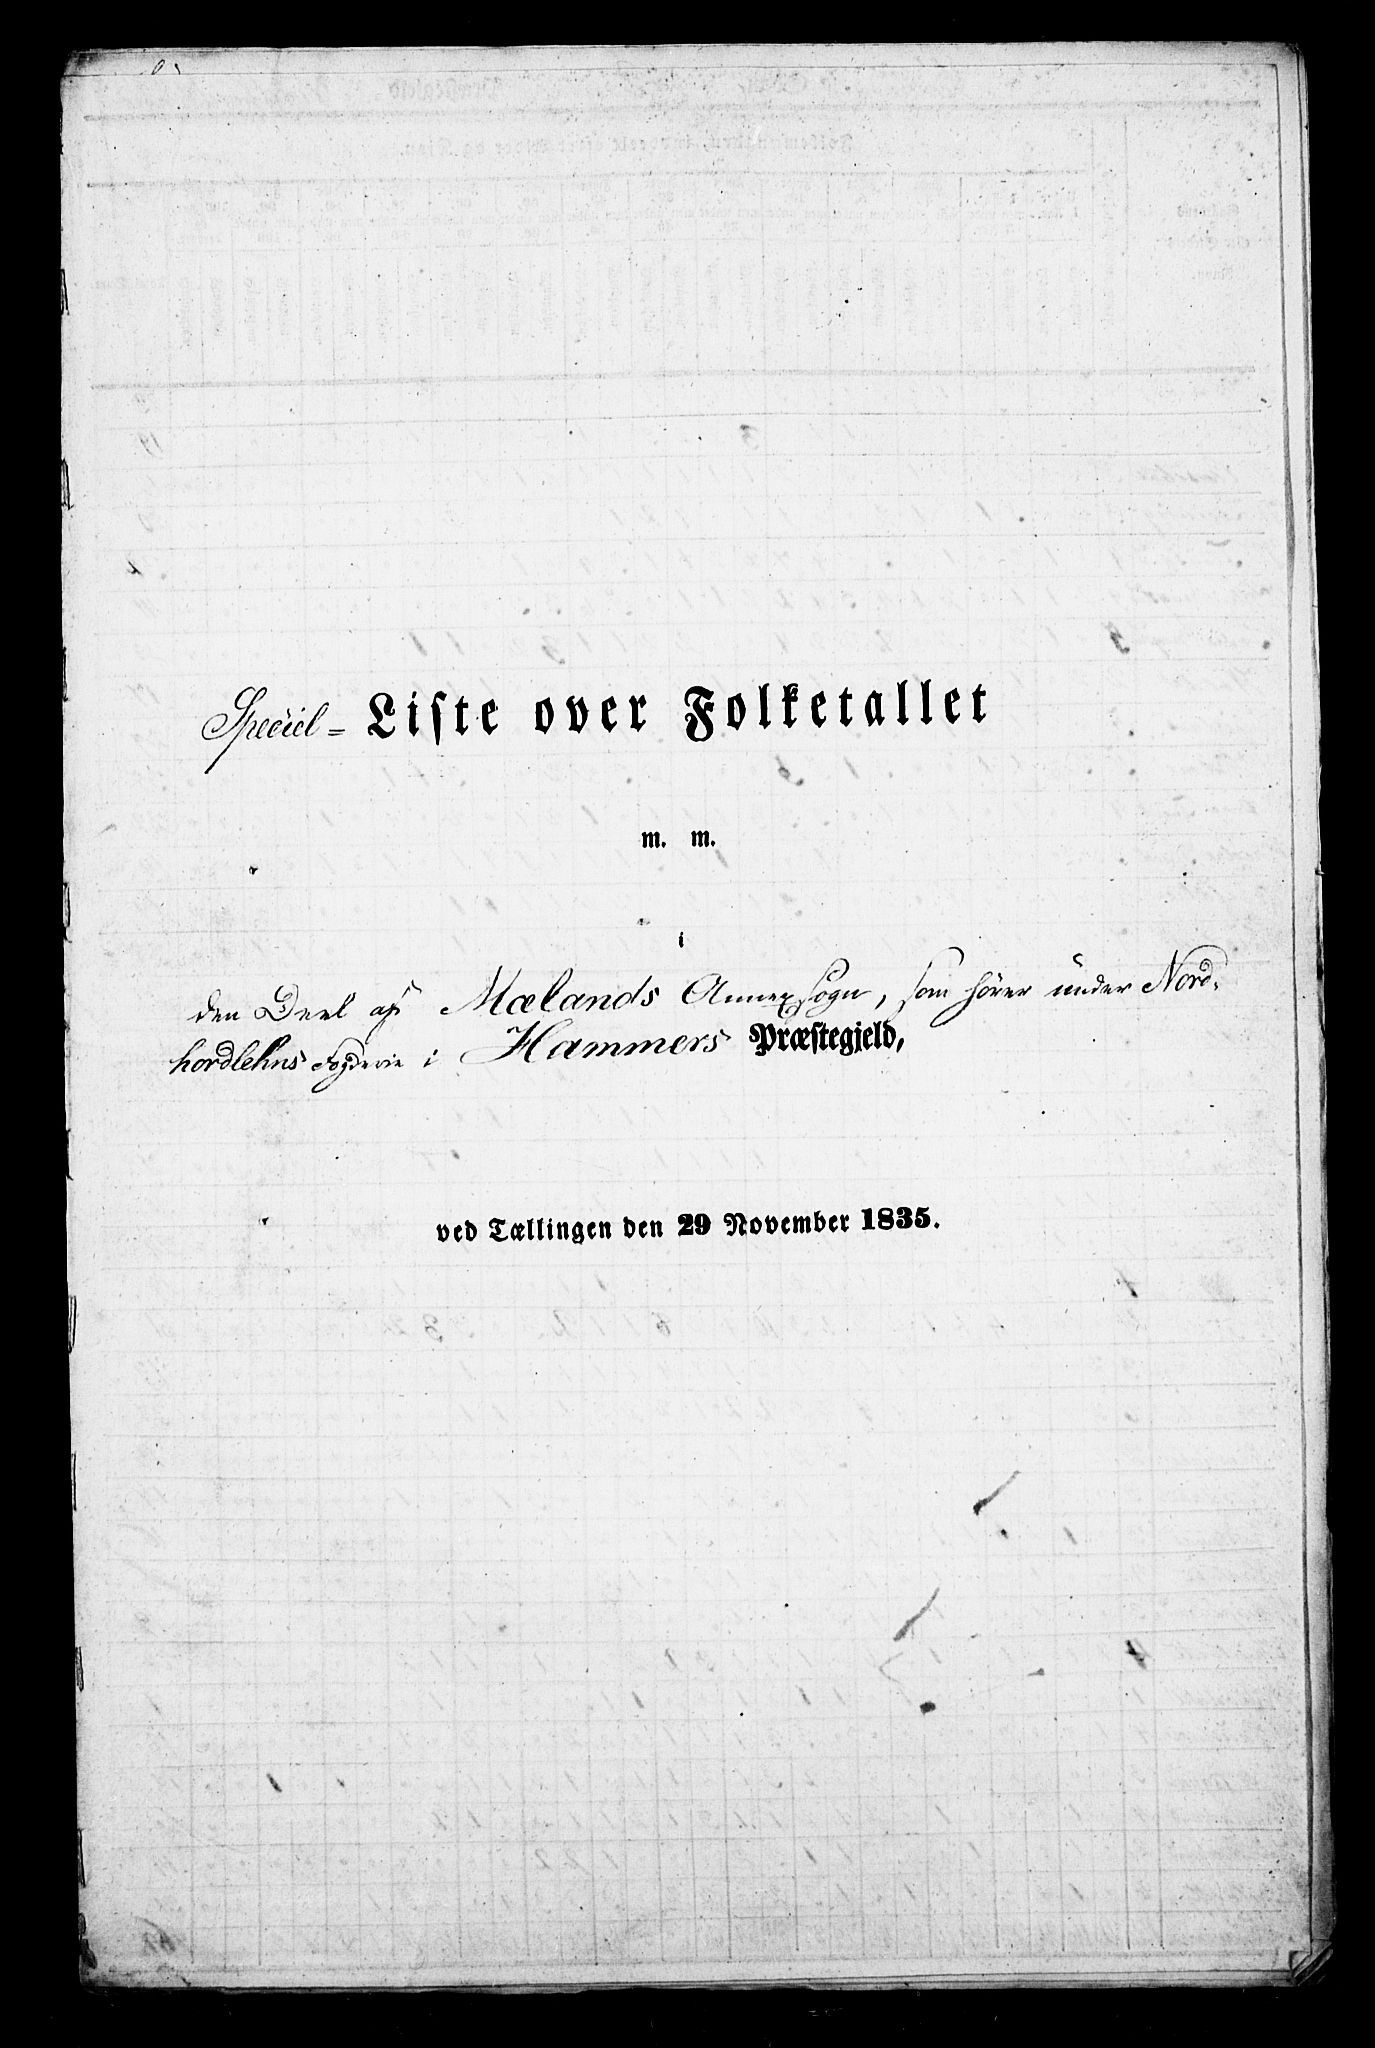 Speciel= Liste over Folketallet
m. m.
i
den Deel af Mælands Annexsogn, som hörer under Nord-
hordlehns Fogderie i Hammers Præstegjeld,
ved Tællingen den 29 November 1835.